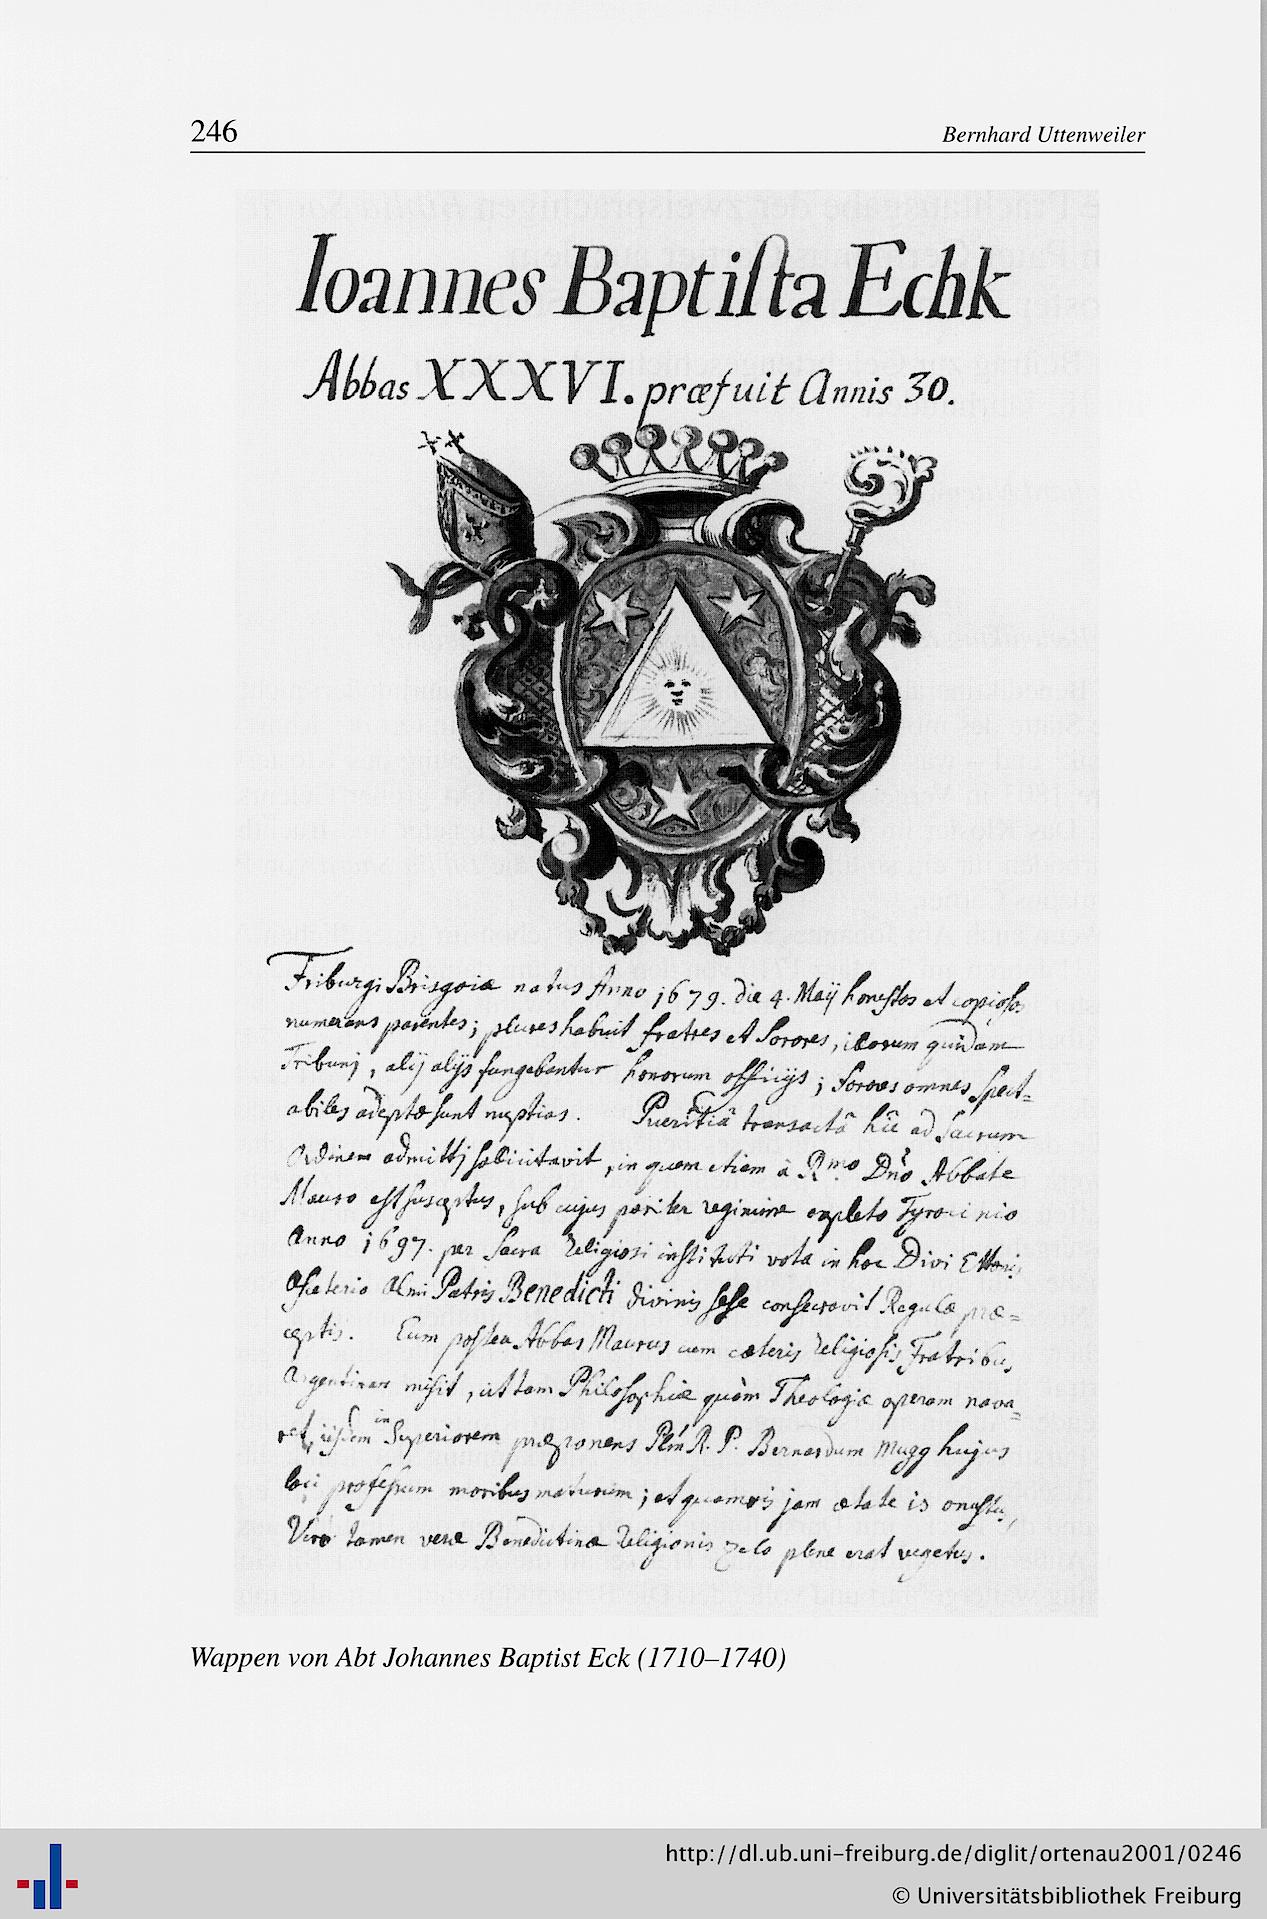 246
Bernhard Uttenweiler
Ioannes Baptiſta Echk
Abbas XXXVI. præfuit Annis 30.
Friburgi Brisgoiæ natus Anno 1679. die 4. Maij honeſtos et copioſos
numerans parentes; plures habuit fratres et Sorores, illorum quidam
Tribuni, alij alijs fungebantur honorum officijs; Sorores omnes Spect-
abiles adeptæ sunt nuptias. Pueritiâ transactâ hic ad Sacrum
Ordinem admitti ſollicitavit, in quem etiam à Rmo. Dno Abbate
Mauro eſt ſusceptus, ſub cujus pariter regimine expleto Tyrocinio
Anno 1697. per Sacra Religiosi instituti vota in hoc Divi Ettonis
Aſceterio Almi Patris Benedicti divinis ſeſe consecravit Regulæ præ=
ceptis. Cum poſtea Abbas Maurus cum cæteris Religioſis Fratribus
Argentinam miſit, ut tam Philoſophiæ quàm Theologiæ operam nava=
ret, iisdem in Superiorem præponens R. P. Bernardum Mugg hujus
loci profeſſum moribus maturum; et quamvis jam ætate is onuſtus,
Vero tamen veræ Benedictinæ Religionis zelo plene erat vegetus.
Wappen von Abt Johannes Baptist Eck (1710–1740)
http://dl.ub.uni-freiburg.de/diglit/ortenau2001/0246
© Universitätsbibliothek Freiburg